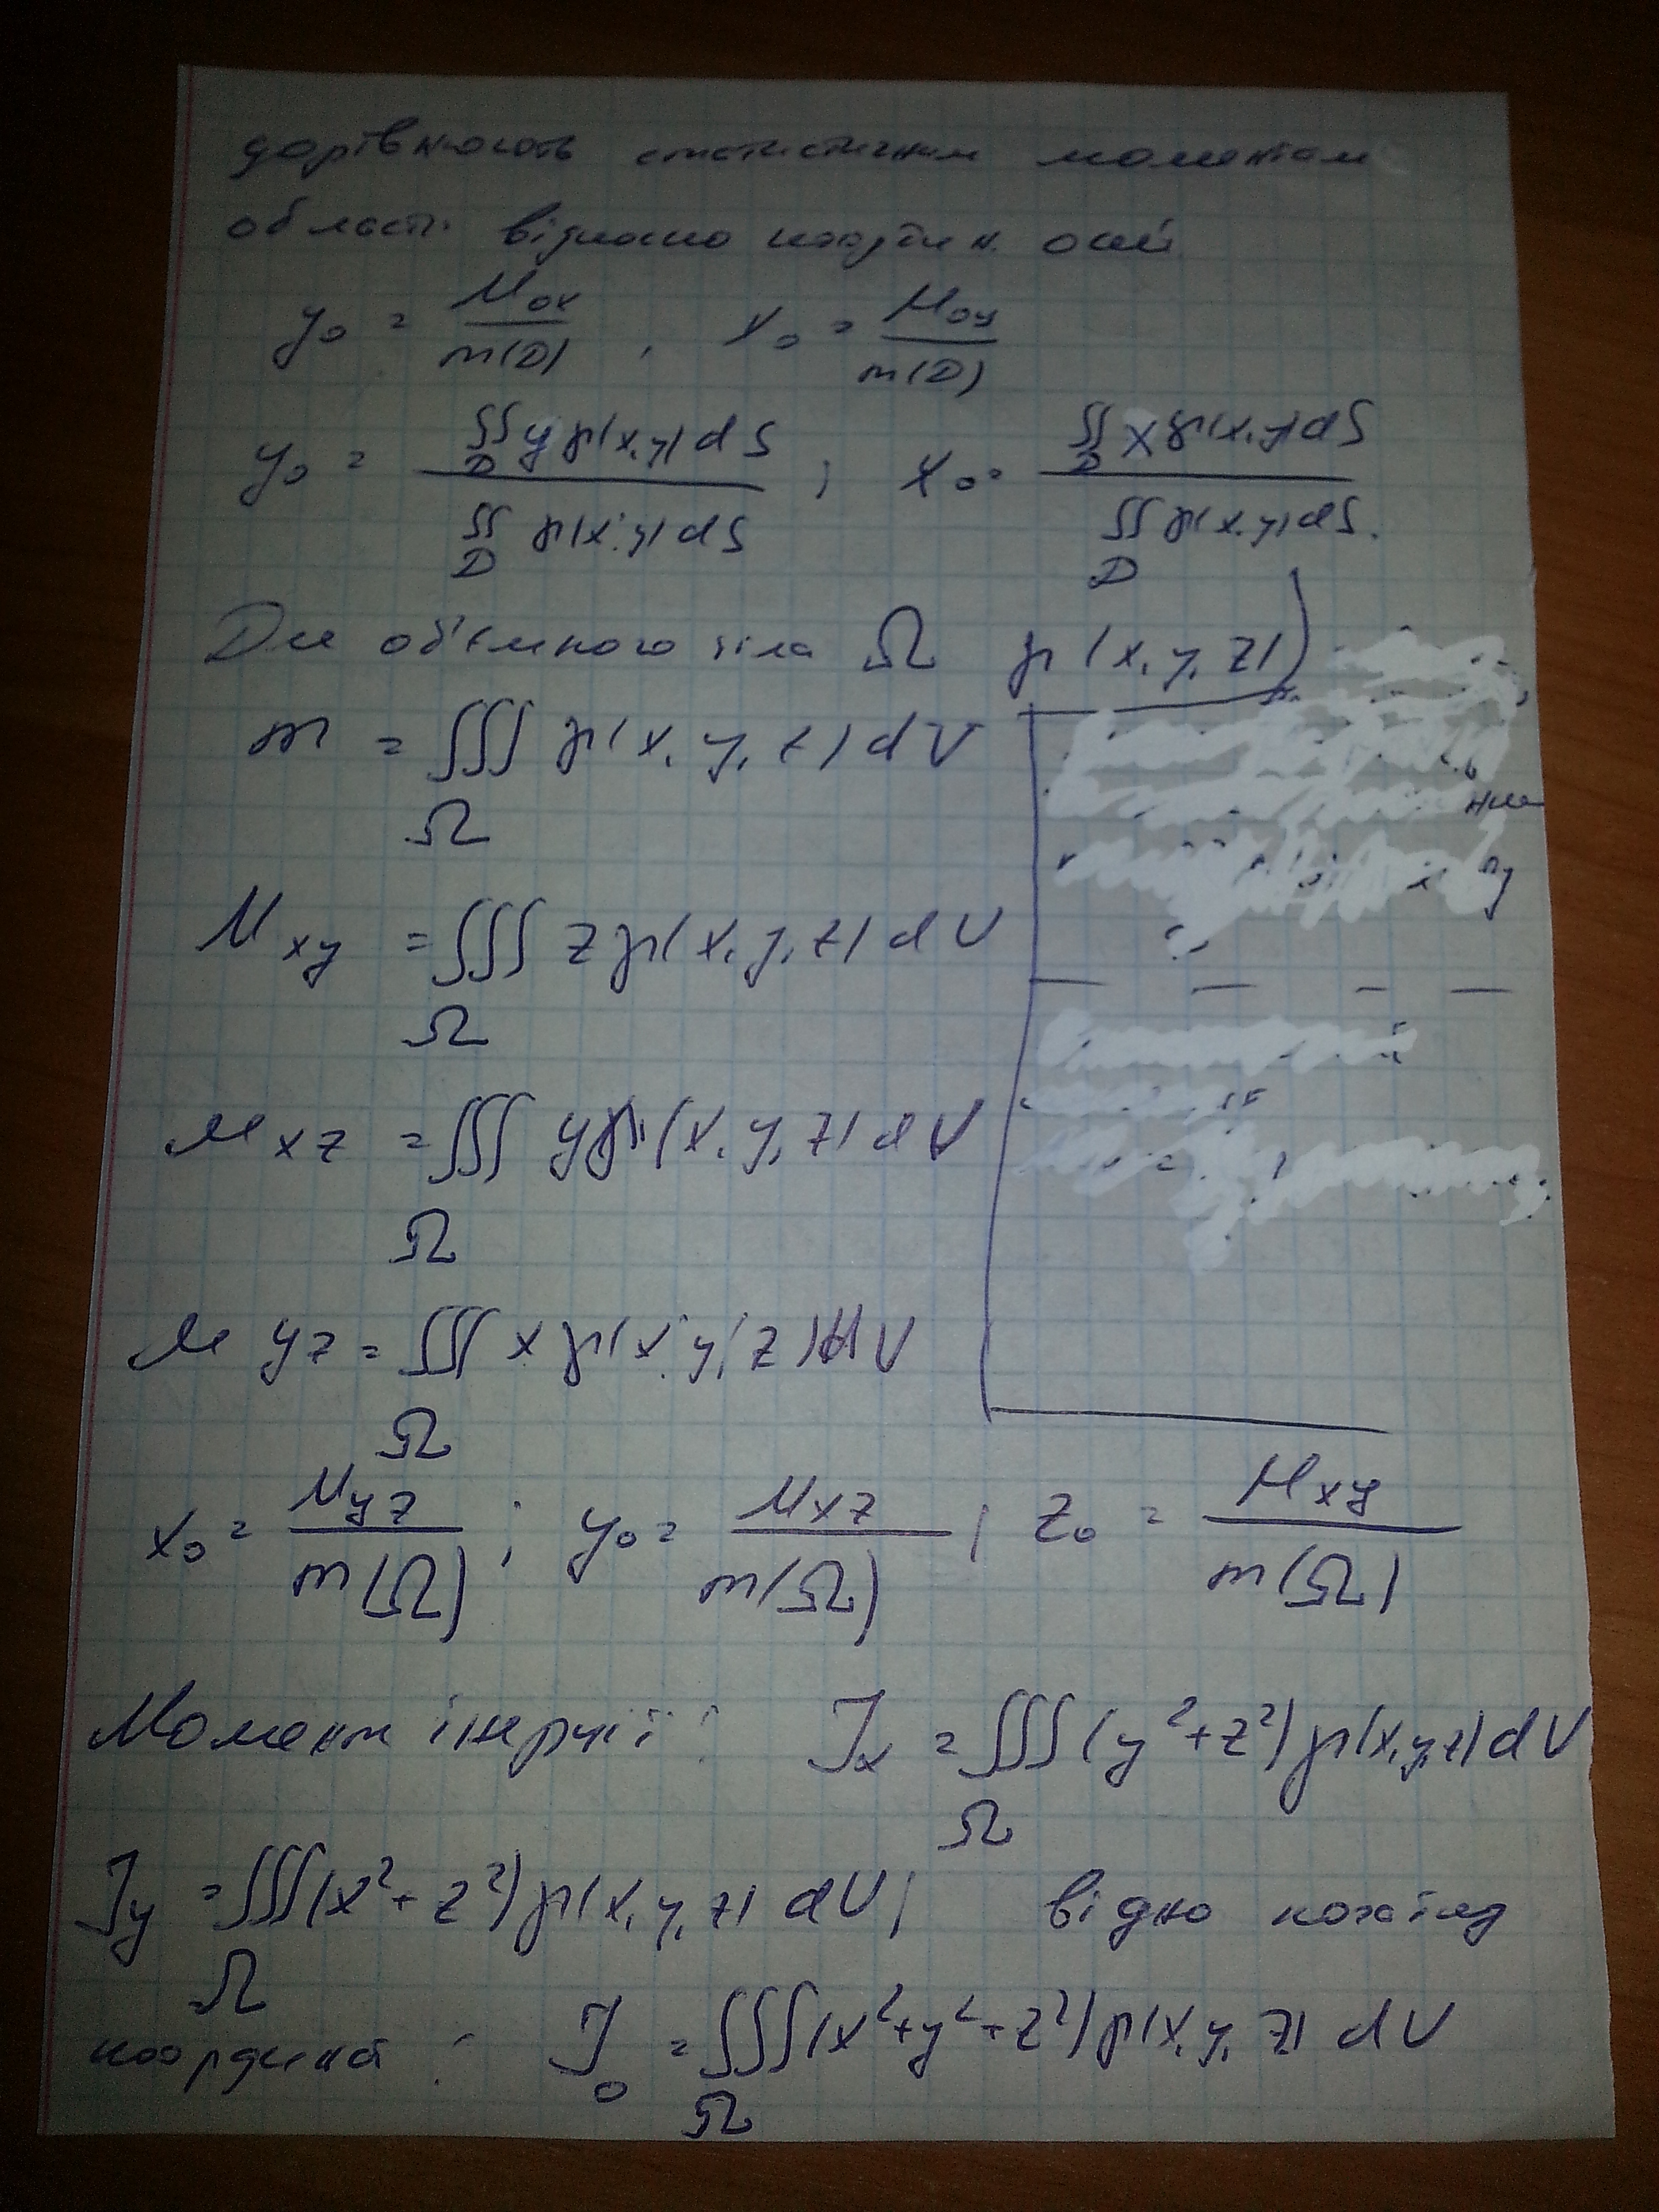 дорівнюють статистичним моментам
області відносно координ. осей
y₀ = M_ox / m(D) , x₀ = M_oy / m(D)
y₀ = ∬_D y γ(x,y) dS / ∬_D γ(x,y) dS ; x₀ = ∬_D x γ(x,y) dS / ∬_D γ(x,y) dS.
Для об'ємного тіла Ω γ(x, y, z)
m = ∭_Ω γ(x, y, z) dV
M_xy = ∭_Ω z γ(x, y, z) dV
M_xz = ∭_Ω y γ(x, y, z) dV
M_yz = ∭_Ω x γ(x, y, z) dV
x₀ = M_yz / m(Ω) ; y₀ = M_xz / m(Ω) ; z₀ = M_xy / m(Ω)
Момент інерції: J_x = ∭_Ω (y² + z²) γ(x,y,z) dV
J_y = ∭_Ω (x² + z²) γ(x, y, z) dV ; відно
координат : J_0 = ∭_Ω (x² + y² + z²) γ(x, y, z) dV